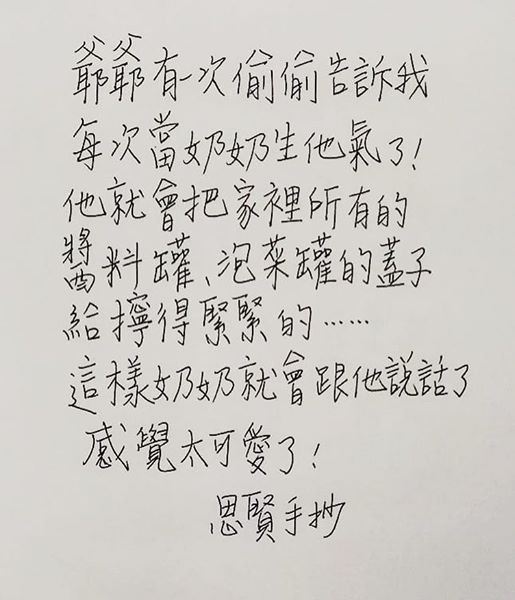 爺爺有一次偷偷告訴我
每次當奶奶生他氣了!
他就會把家裡所有的
醬料罐、泡菜罐的蓋子
給擰得緊緊的……
這樣奶奶就會跟他說話了
感覺太可愛了!
思賢手抄